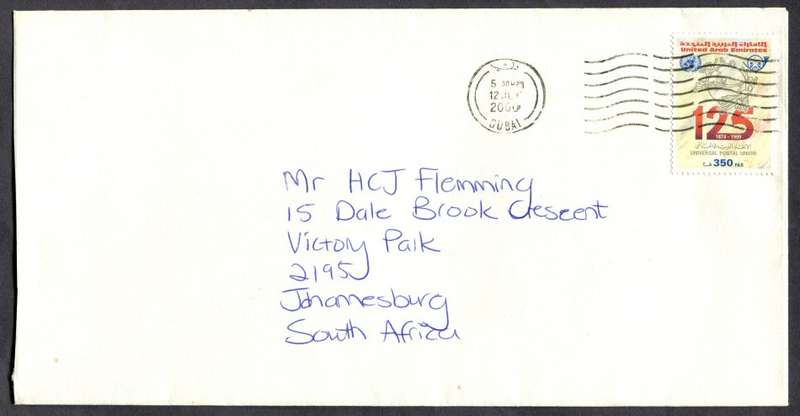 الإمارات العربية المتحدة
United Arab Emirates
دبي
5
12
2000
DUBAI
125
1874 - 1999
UNIVERSAL POSTAL UNION
350 FILS
Mr HCJ Flemming
15 Dale Brook Crescent
Victory Park
2195
Johannesburg
South Africa